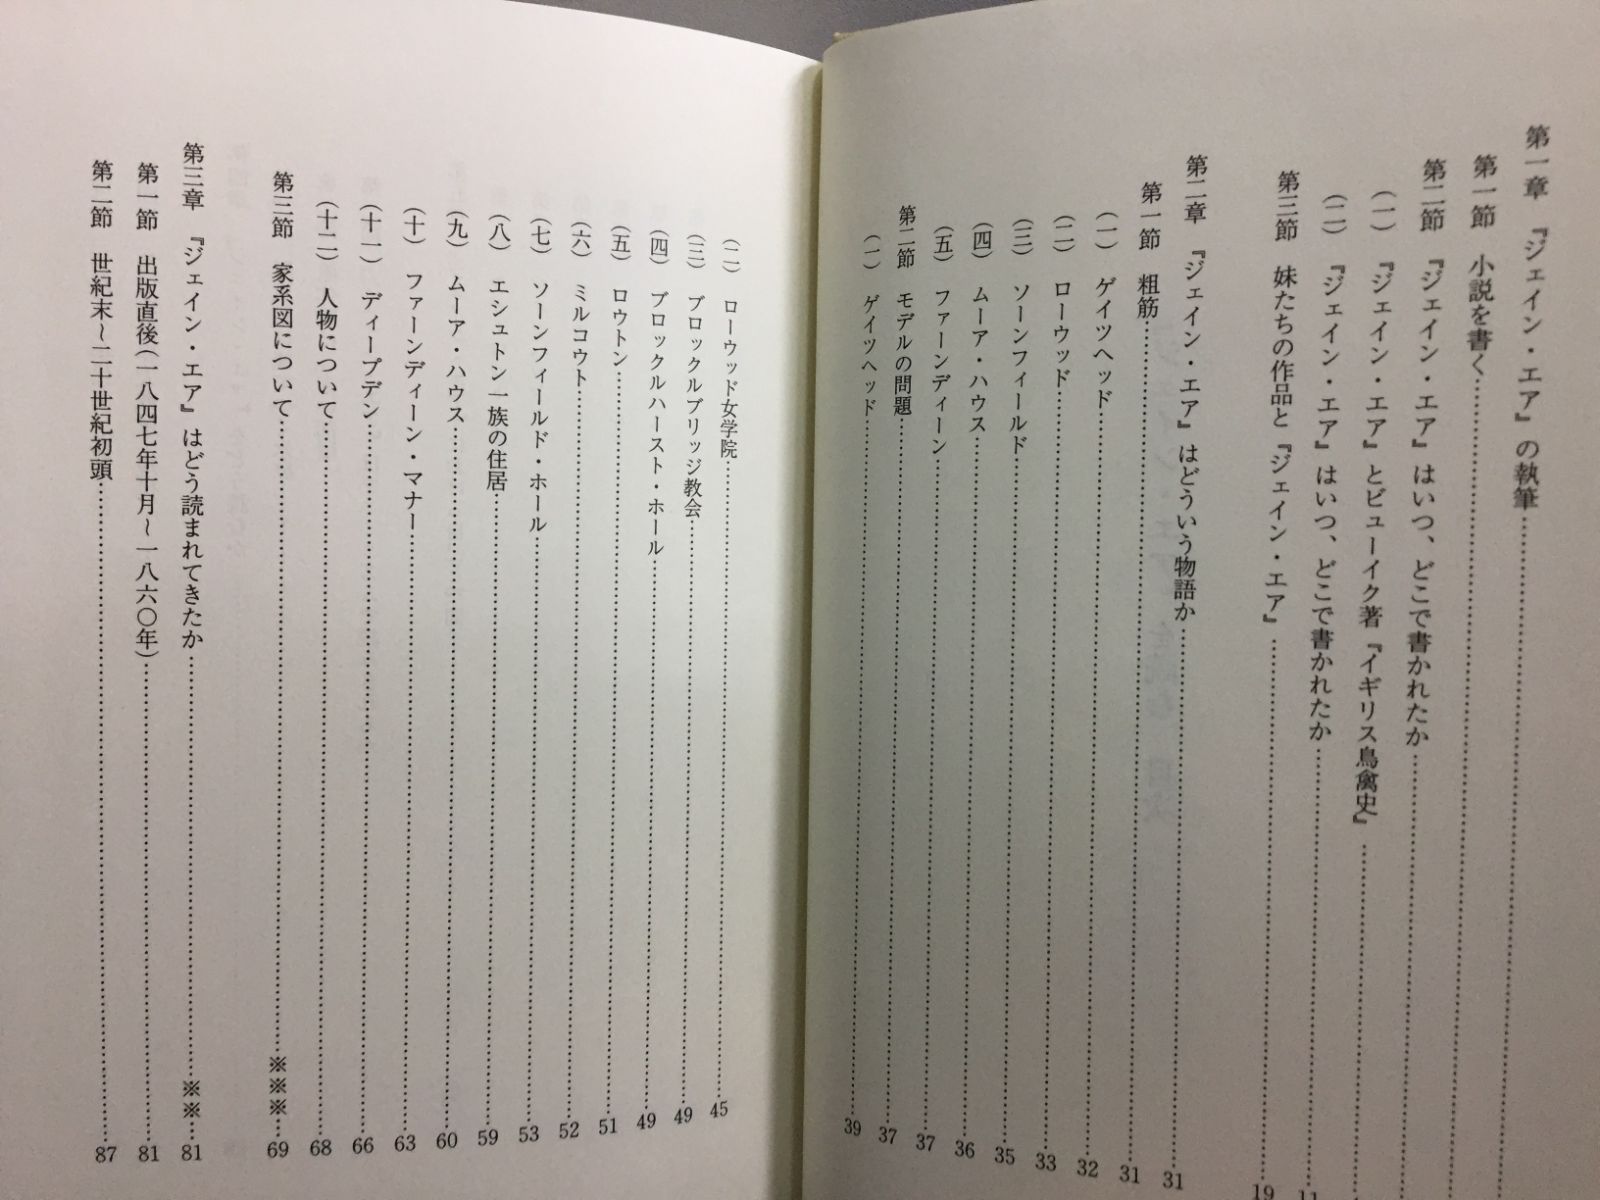 第一章 『ジェイン・エア』の執筆
第一節 小説を書く
第二節 『ジェイン・エア』はいつ、どこで書かれたか
(一) 『ジェイン・エア』とビューイク著『イギリス鳥禽史』
(二) 『ジェイン・エア』はいつ、どこで書かれたか 11
第三節 妹たちの作品と『ジェイン・エア』 19
第二章 『ジェイン・エア』はどういう物語か 31
第一節 粗筋 31
(一) ゲイツヘッド 32
(二) ローウッド 33
(三) ソーンフィールド 35
(四) ムーア・ハウス 36
(五) ファーンディーン 37
第二節 モデルの問題 37
(一) ゲイツヘッド 39
(二) ローウッド女学院 45
(三) ブロックルブリッジ教会 49
(四) ブロックルハースト・ホール 49
(五) ロウトン 51
(六) ミルコウト 52
(七) ソーンフィールド・ホール 53
(八) エシュトン一族の住居 59
(九) ムーア・ハウス 60
(十) ファーンディーン・マナー 63
(十一) ディープデン 66
(十二) 人物について 68
第三節 家系図について ※※※ 69
第三章 『ジェイン・エア』はどう読まれてきたか ※※ 81
第一節 出版直後(一八四七年十月~一八六〇年) 81
第二節 世紀末~二十世紀初頭 87